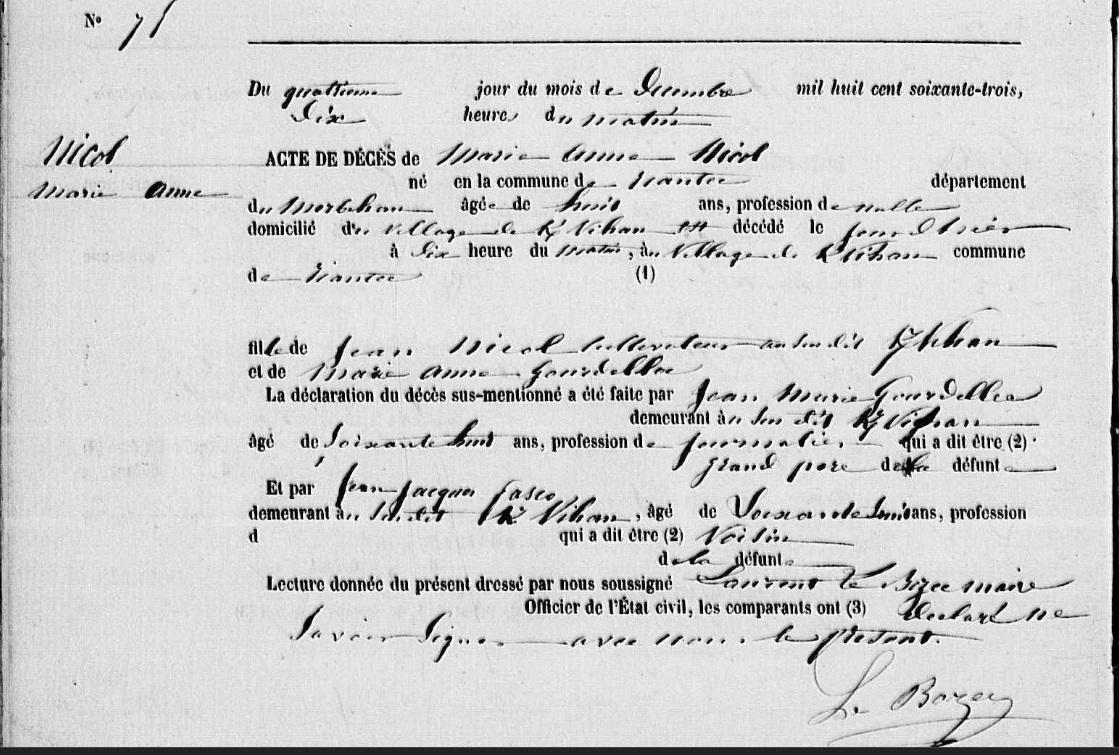 N° 75
Du quatrieme jour du mois de Decembre mil huit cent soixante-trois,
Dix heures du matin
Nicol
Marie Anne
ACTE DE DÉCÈS de Marie Anne Nicol
né en la commune de département
du Morbihan âgée de huit ans, profession de nulle
domicilié du village de Kr Vihan est décédé le jour d'hier
à Dix heure du matin, au Village de Kr Vihan commune
de (1)
fille de Jean Nicol cultivateur au sudit Kr Vihan
et de Marie Anne Gourdellec
La déclaration du décès sus-mentionné a été faite par Jean Marie Gourdellec
demeurant au su dit Kr Vihan
âgé de Soixante huit ans, profession de journalier qui a dit être (2)
grand pere de la défunte
Et par Jean Jacques Casco
demeurant au sudit Kr Vihan, âgé de Soixante huit ans, profession
d qui a dit être (2) Voisin
de la défunte
Lecture donnée du présent dressé par nous soussigné Laurent Le maire
Officier de l'État civil, les comparants ont (3) declaré ne
Savoir Signer avec nous le present.
Le